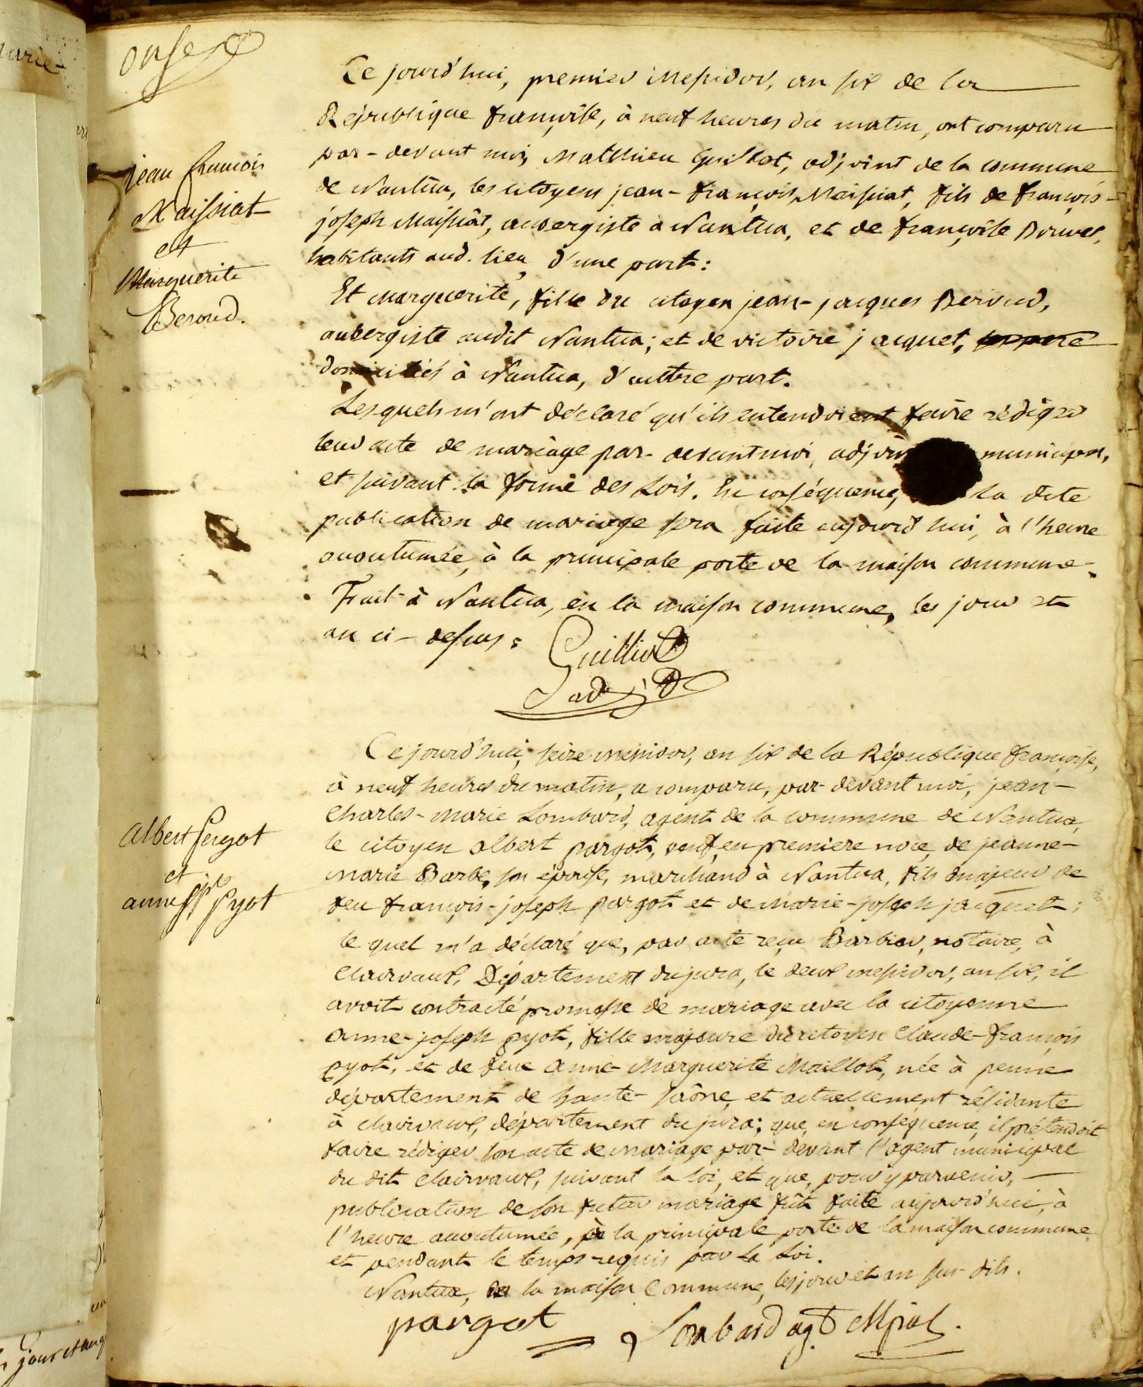 onze
Ce jourd'hui, premier messidor, an six de la
République françoise, à neuf heures du matin, ont comparu
par-devant moi, Matthieu Guilliot, adjoint de la commune
de Nantua, les citoyens jean-françois Maissiat, fils de françois-
joseph Maissiat, aubergiste à Nantua, et de françoise
habitants aud. lieu, d'une part:
Et Marguerite, fille du citoyen jean-jacques Beroud,
aubergiste audit Nantua; et de victoire jacquet,
domiciliés à Nantua, d'autre part.
Lesquels m'ont déclaré qu'ils entendoient faire rédiger
leur acte de mariage par-devant moi, municipal,
et suivant la forme des Lois. En conséquence, la dite
publication de mariage sera faite aujourd'hui, à l'heure
accoutumée, à la principale porte de la maison commune.
Fait à Nantua, en la maison commune, les jour et
an ci-dessus:
Guilliot
adj
jean françois
Maissiat
et
Marguerite
Beroud.
Ce jourd'hui, seize messidor, an six de la République françoise,
à neuf heures du matin, a comparu, par-devant moi, jean-
charles-marie Lombard, agent de la commune de Nantua,
le citoyen albert pargot, veuf, en premiere noce, de jeanne-
marie Barbe, son épouse, marchand à Nantua, fils majeur de
feu françois-joseph pargot et de marie-joseph jacquet;
le quel m'a déclaré que, par acte reçu Barbier, notaire, à
clairvaux, Département du jura, le deux messidor, an six, il
avoit contracté promesse de mariage avec la citoyenne
anne-joseph pyot, fille majeure du citoyen Claude-françois
pyot, et de feue anne-Marguerite Maillot, née à penne
département de haute-saône, et actuellement résidante
à clairvaux, département du jura; que, en conséquence, il prétendoit
faire rédiger son acte de mariage par-devant l'agent municipal
du dit clairvaux, suivant la loi, et que, pour y parvenir,
publication de son futur mariage fût faite aujourd'hui, à
l'heure accoutumée, à la principale porte de la maison commune,
et pendant le temps requis par la Loi.
Nantua, en la maison Commune, les jour et an sus-dits.
pargot Lombard agt Mpal.
albert pergot
et
anne jph pyot